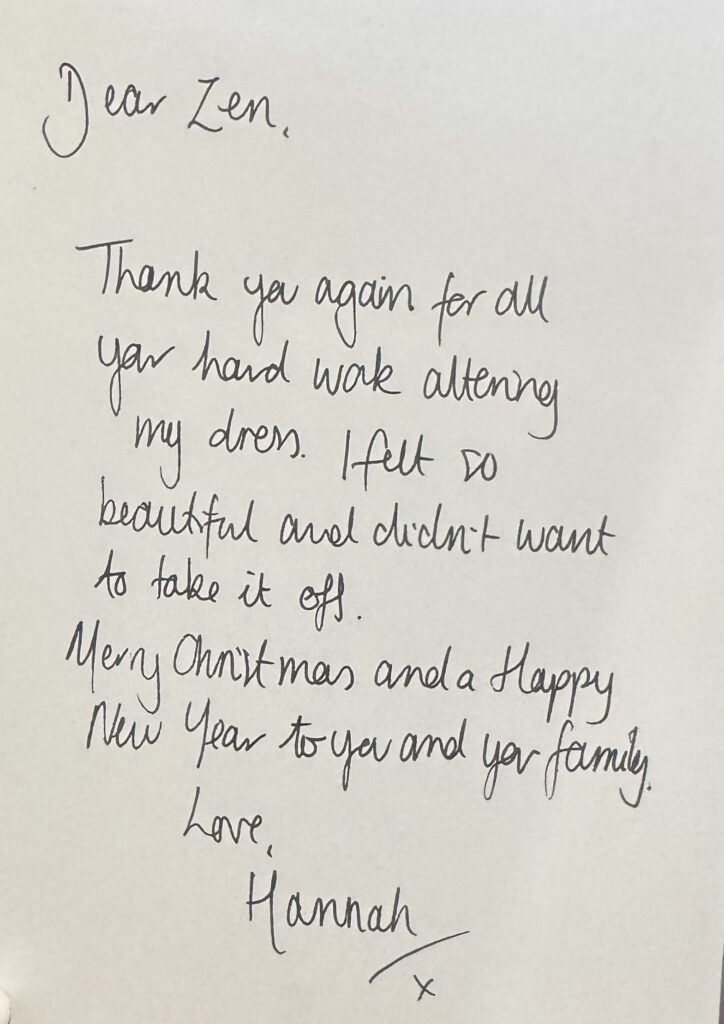 Dear Zen,
Thank you again for all
your hard work altering
my dress. I felt so
beautiful and didn't want
to take it off.
Merry Christmas and a Happy
New Year to you and your family.
Love,
Hannah
x